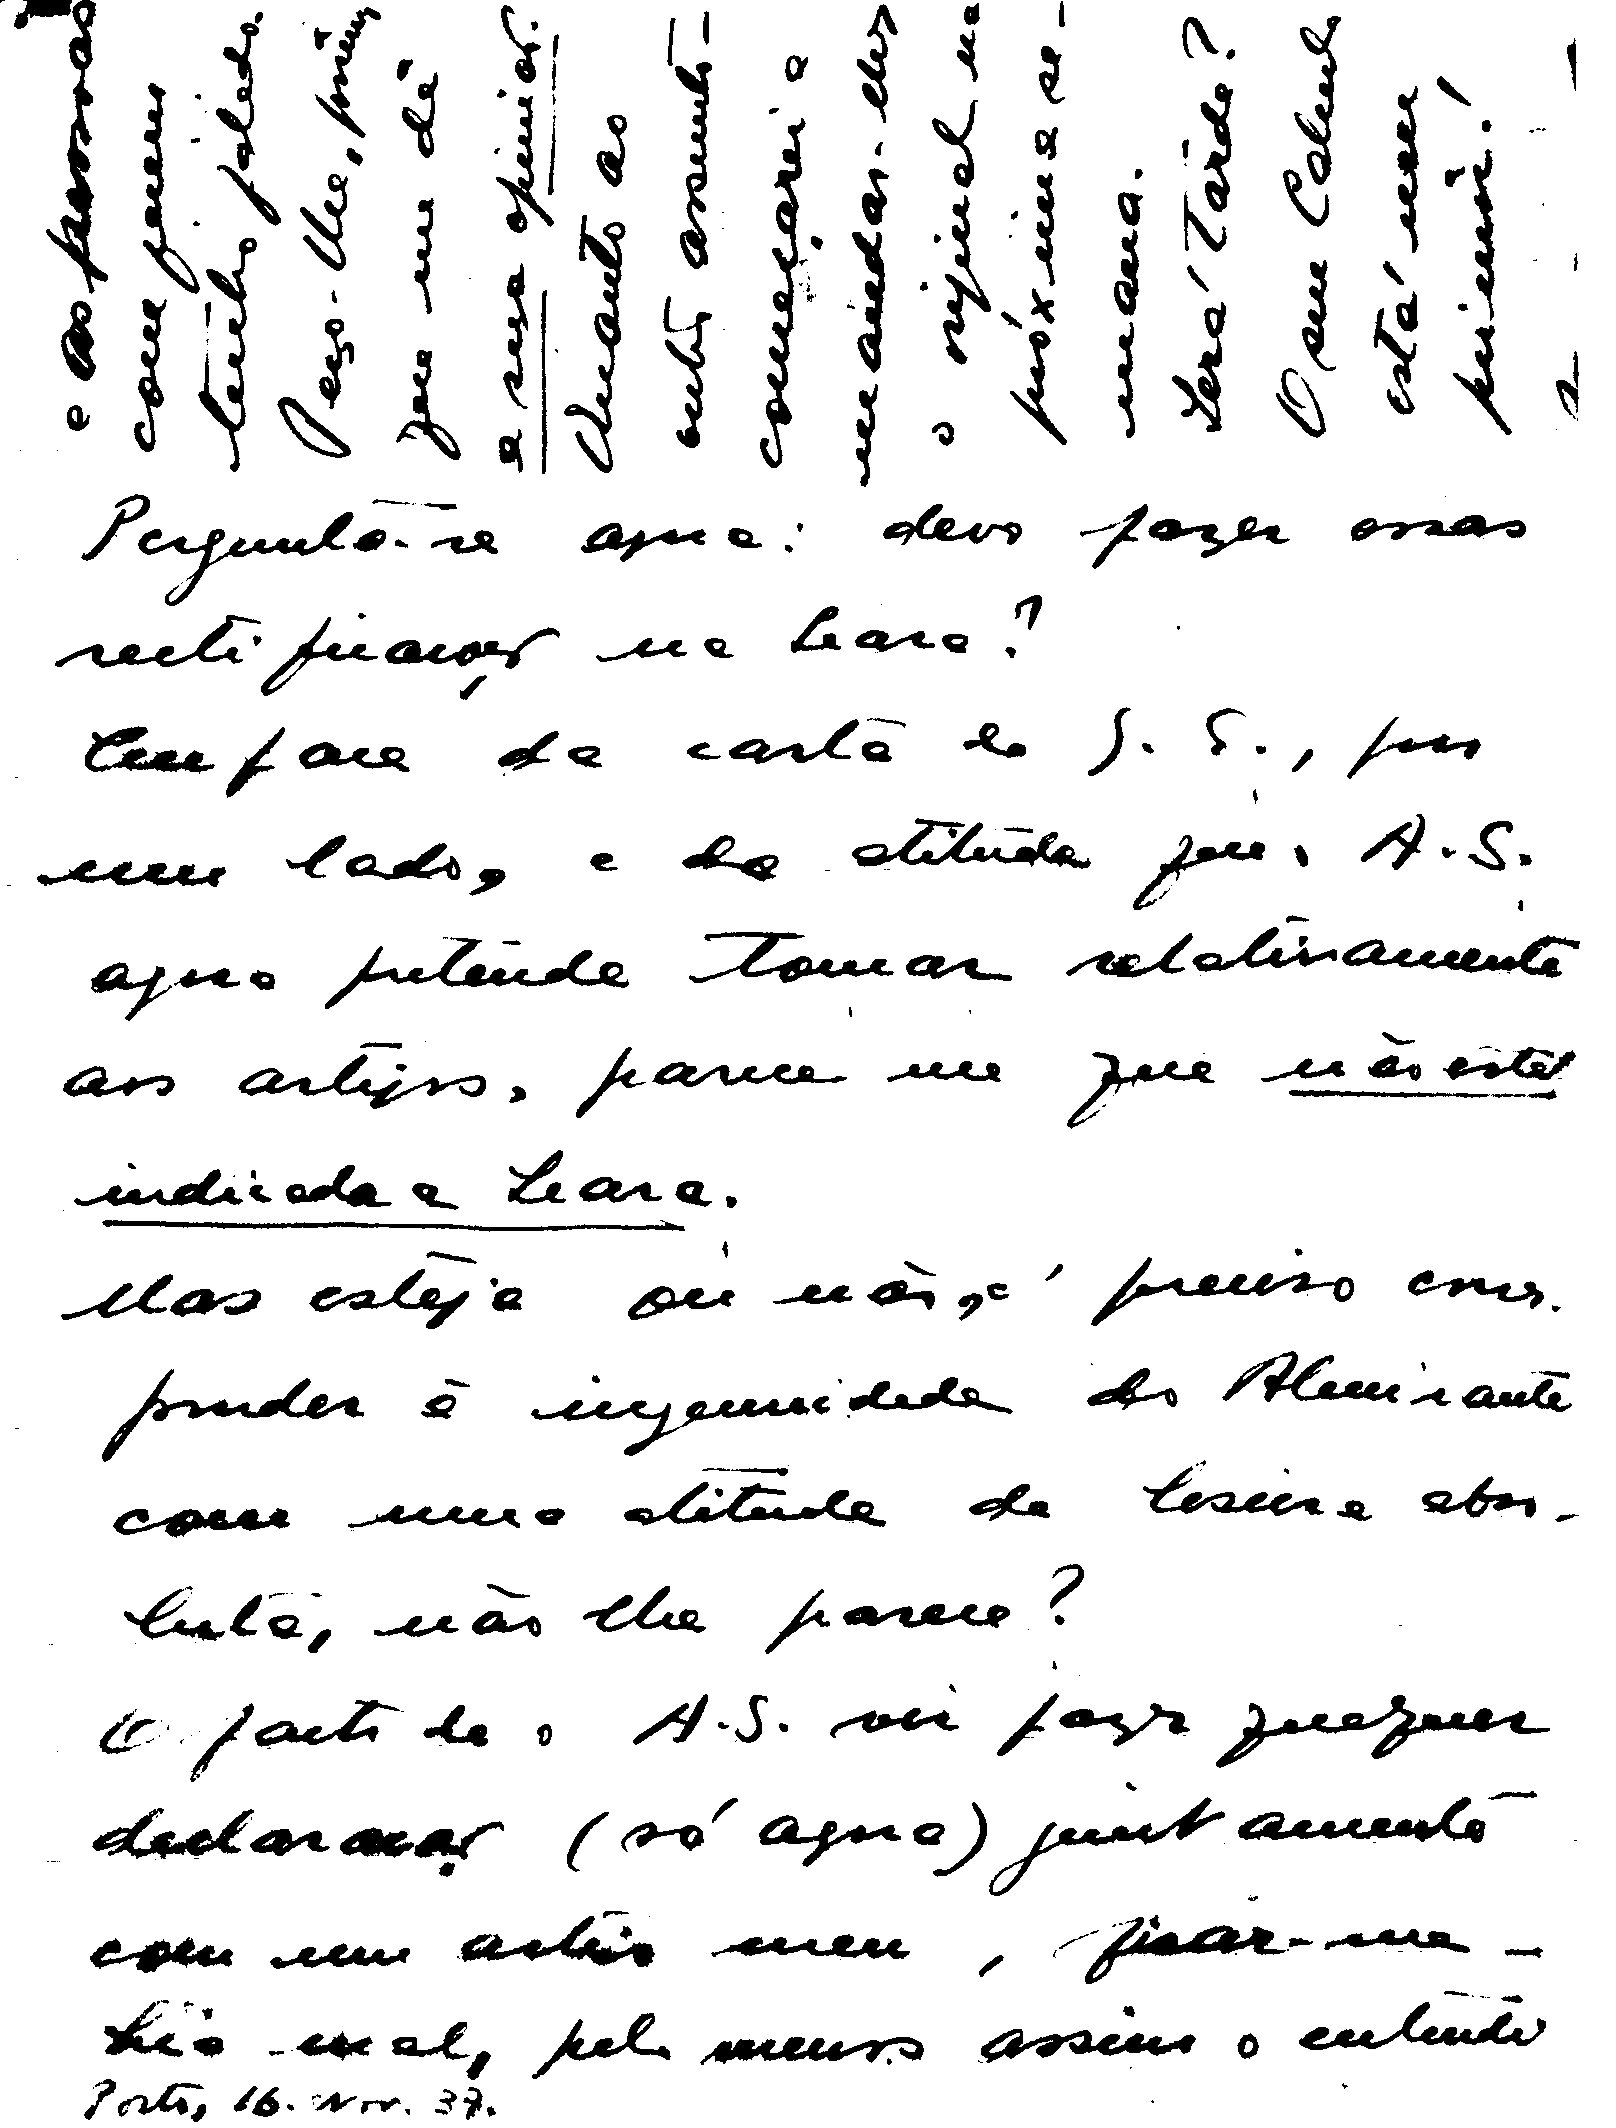 Pergunta-se agora: devo fazer essas
rectificações na Seara?
Em face da carta do S. S., por
um lado, e da atitude que o A. S.
agora pretende tomar relativamente
aos artigos, parece-me que não está
indicada a Seara.
Mas esteja ou não, é preciso corres-
ponder à ingenuidade do Almirante
com uma atitude de lisura abso-
luta, não lhe parece?
O facto de o A. S. vir fazer quaisquer
declarações (só agora) juntamente
com um artigo meu, ficar-me-
hia mal, pelo menos assim o entendo
Porto, 16. Nov. 37.
e as pessoas
com quem
tenho falado.
Peço-lhe, porém,
que me dê
a sua opinião.
Quanto ao
outro assunto
começarei a
mandar-lhe
o original na
próxima se-
mana.
Será tarde?
O seu
está um
primor!